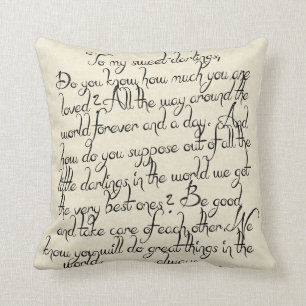 To my sweet darlings,
Do you know how much you are
loved? All the way around the
world forever and a day. And
how do you suppose out of all the
little darlings in the world we got
the very best ones? Be good
and take care of each other. We
know you will do great things in the
world always